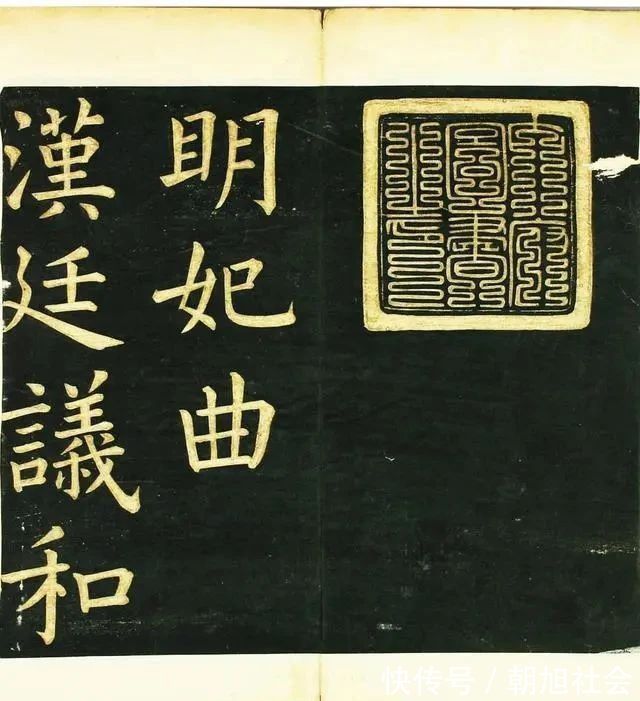 明妃曲
漢廷議和
快传号／朝旭社会